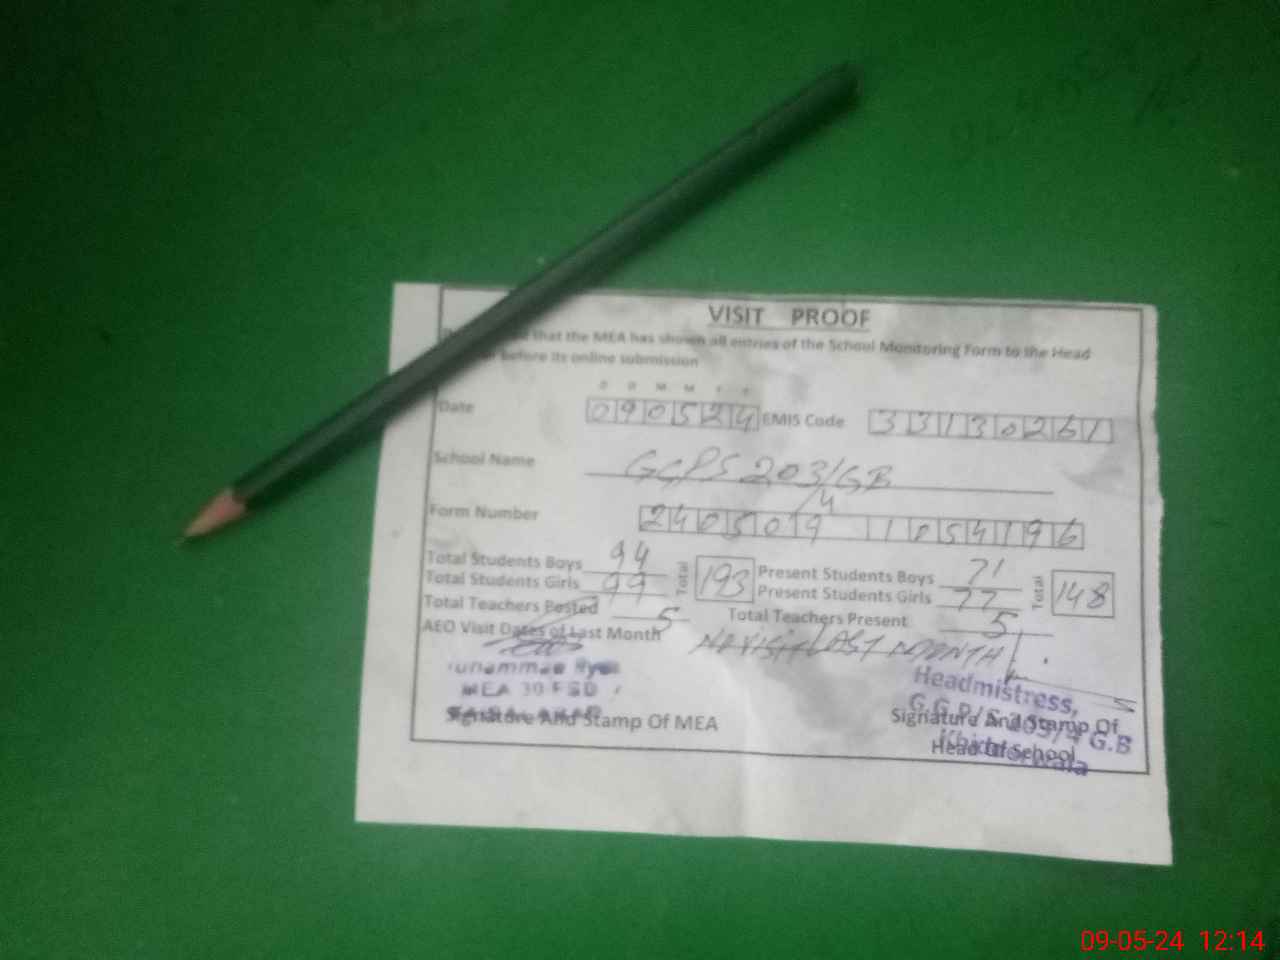 VISIT PROOF
that the MEA has shown all entries of the School Monitoring Form to the Head
before its online submission
D D M M Y Y
Date 090524 EMIS Code 33130261
School Name GGPS 203/GB
4
Form Number 240509 1054196
Total Students Boys 94 Total 193 Present Students Boys 71 Total 148
Total Students Girls 99 Present Students Girls 77
Total Teachers Posted 5 Total Teachers Present 5
AEO Visit Dates of Last Month NO VISIT LAST MONTH
MEA 30 FSD
Signature And Stamp Of MEA
Headmistress,
G.G.P/S 203/4 G.B
Signature And Stamp Of
Head Of School
09-05-24 12:14